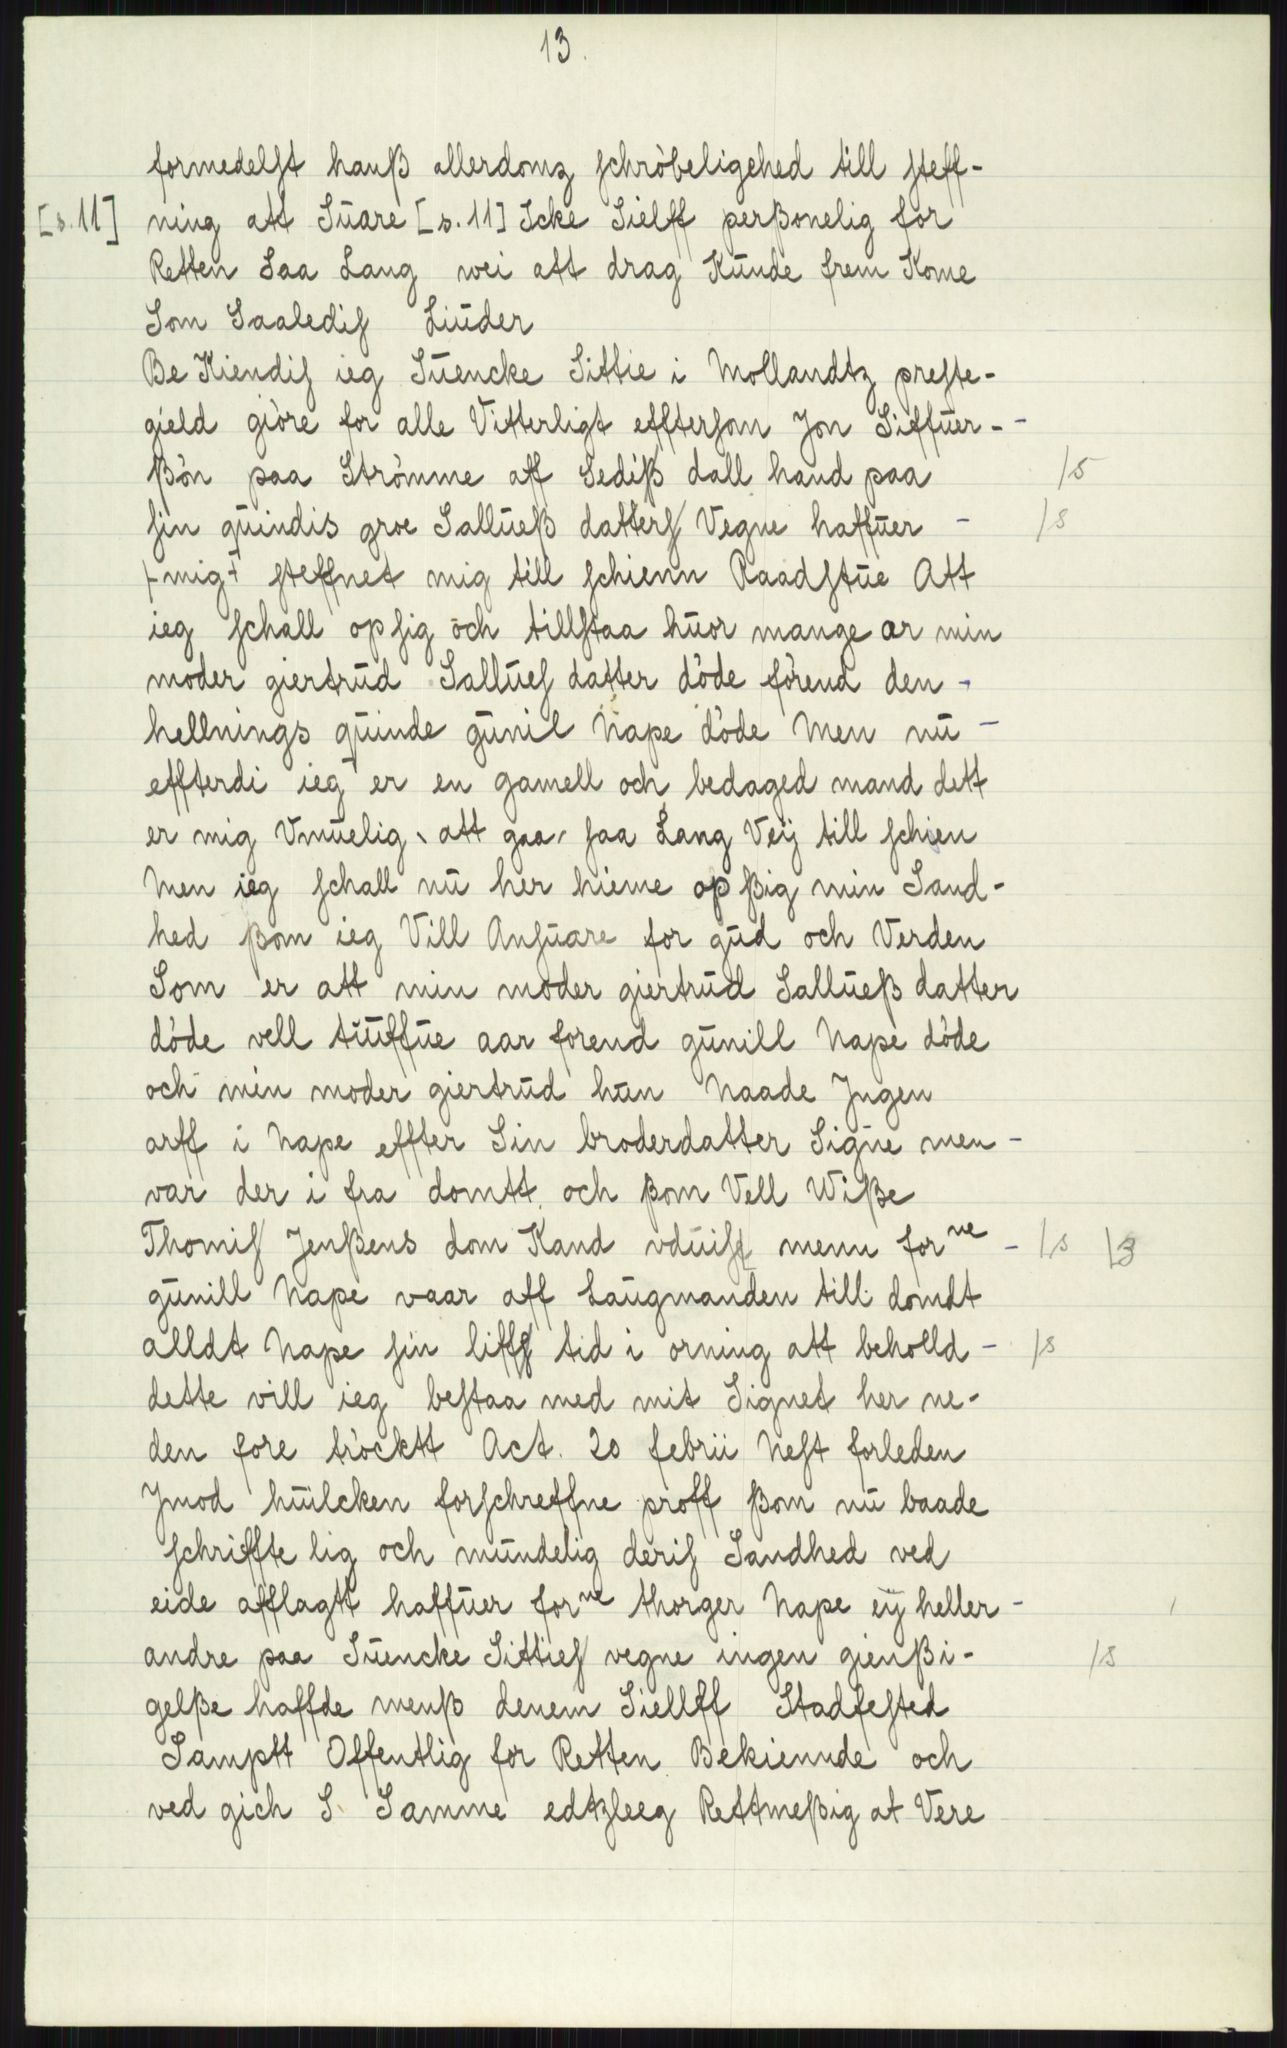 13.
formedelst hanß allerdomz schröbeligehed till steff-
[s. 11] ning att Suare [s. 11] Icke Sielff perßonelig for
Retten Saa Lang wei att drag Kunde frem Kome
Som Saaledis Liuder
Be Kiendis ieg Suencke Sittie i Mollandtz preste-
gield giöre for alle Vitterligt efftersom Jon Siffuer- -
ßön paa Strömme aff Sediß dall hand paa /s
sin quindis groe Sallueß datters Vegne haffuer - /s
⊢mig⊣ steffnet mig till schienn Raadstue Att
ieg schall opsig och tillstaa huor mange ar min
moder giertrud Sallues datter döde förend den -
hellnings quinde gunil Nape döde Men nu -
effterdi ieg er en gamell och bedaged mand dett
er mig Vmuelig, att gaa, saa Lang Veÿ till schien
Men ieg schall nu her hieme opßig min Sand-
hed ßom ieg Vill Ansuare for gud och Verden
Som er att min moder giertrud Sallueß datter
döde vell tiuffue aar forend gunill Nape döde
och min moder giertrud hun Naade Jngen
arff i Nape effter Sin broderdatter Signe men -
var der i fra domtt och ßom Vell Wiße
Thomis Jenßens dom Kand vduist menn for ne - /s /3
gunill Nape vaar aff Laugmanden till domdt
alldt Nape sin liffs tid i orning att beholld - /s
dette vill ieg bestaa med mit Signet her ne-
den fore tröcktt Act. 20 febrii Nest forleden
Jmod huilcken forschreffne proff ßom nu baade
schriffte lig och mundelig deris Sandhed ved
eide afflagtt haffuer for ne thorger Nape eÿ heller -
andre paa Suencke Sitties vegne ingen gienßi- /s
gelße haffde menß denem Siellff Stadfested
Samptt Offentlig for Retten Bekiennde och
ved gich S. Samme edtzleeg Rettmeßig at Vere